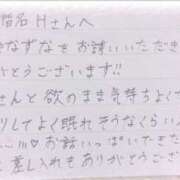 皆名 Hさんへ
なずなをお誘いいただき
がとうございます!!
さんと欲のまま気持ちよく
りしてよく眠れそうなくらい
...!!!♡お話いっぱいできた
差し入れもありがとうござ